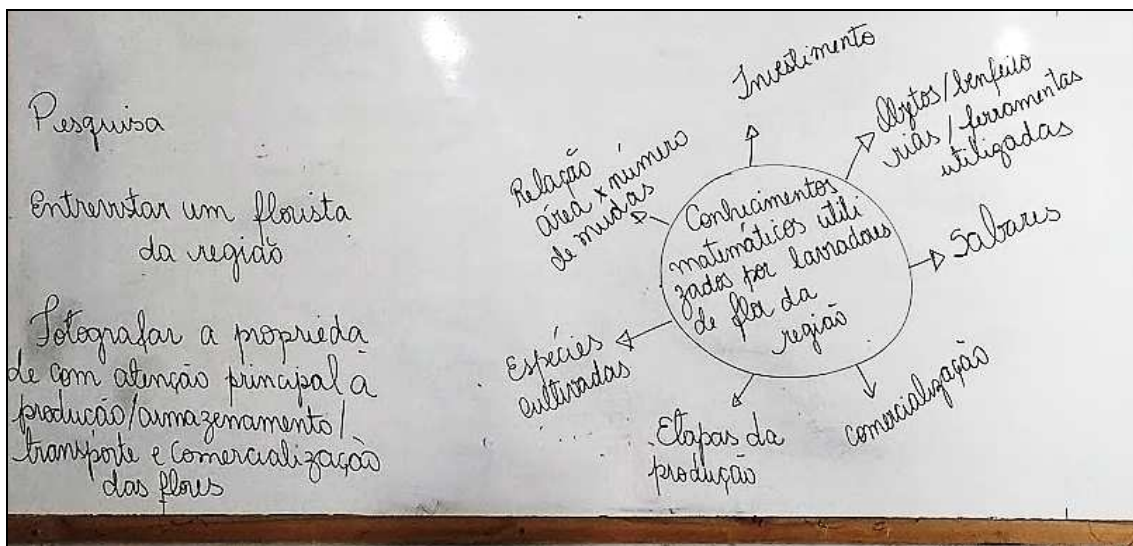 Pesquisa
Entrevistar um florista
da região
Fotografar a proprieda
de com atenção principal à
produção/armazenamento/
transporte e comercialização
das flores
Conhecimentos
matemáticos utili
zados por lavradores
de flor da
região
Investimento
Objetos/benfeito
rias/ferramentas
utilizadas
Sabares
comercialização
Etapas da
produção
Espécies
cultivadas
Relação
área x número
de mudas